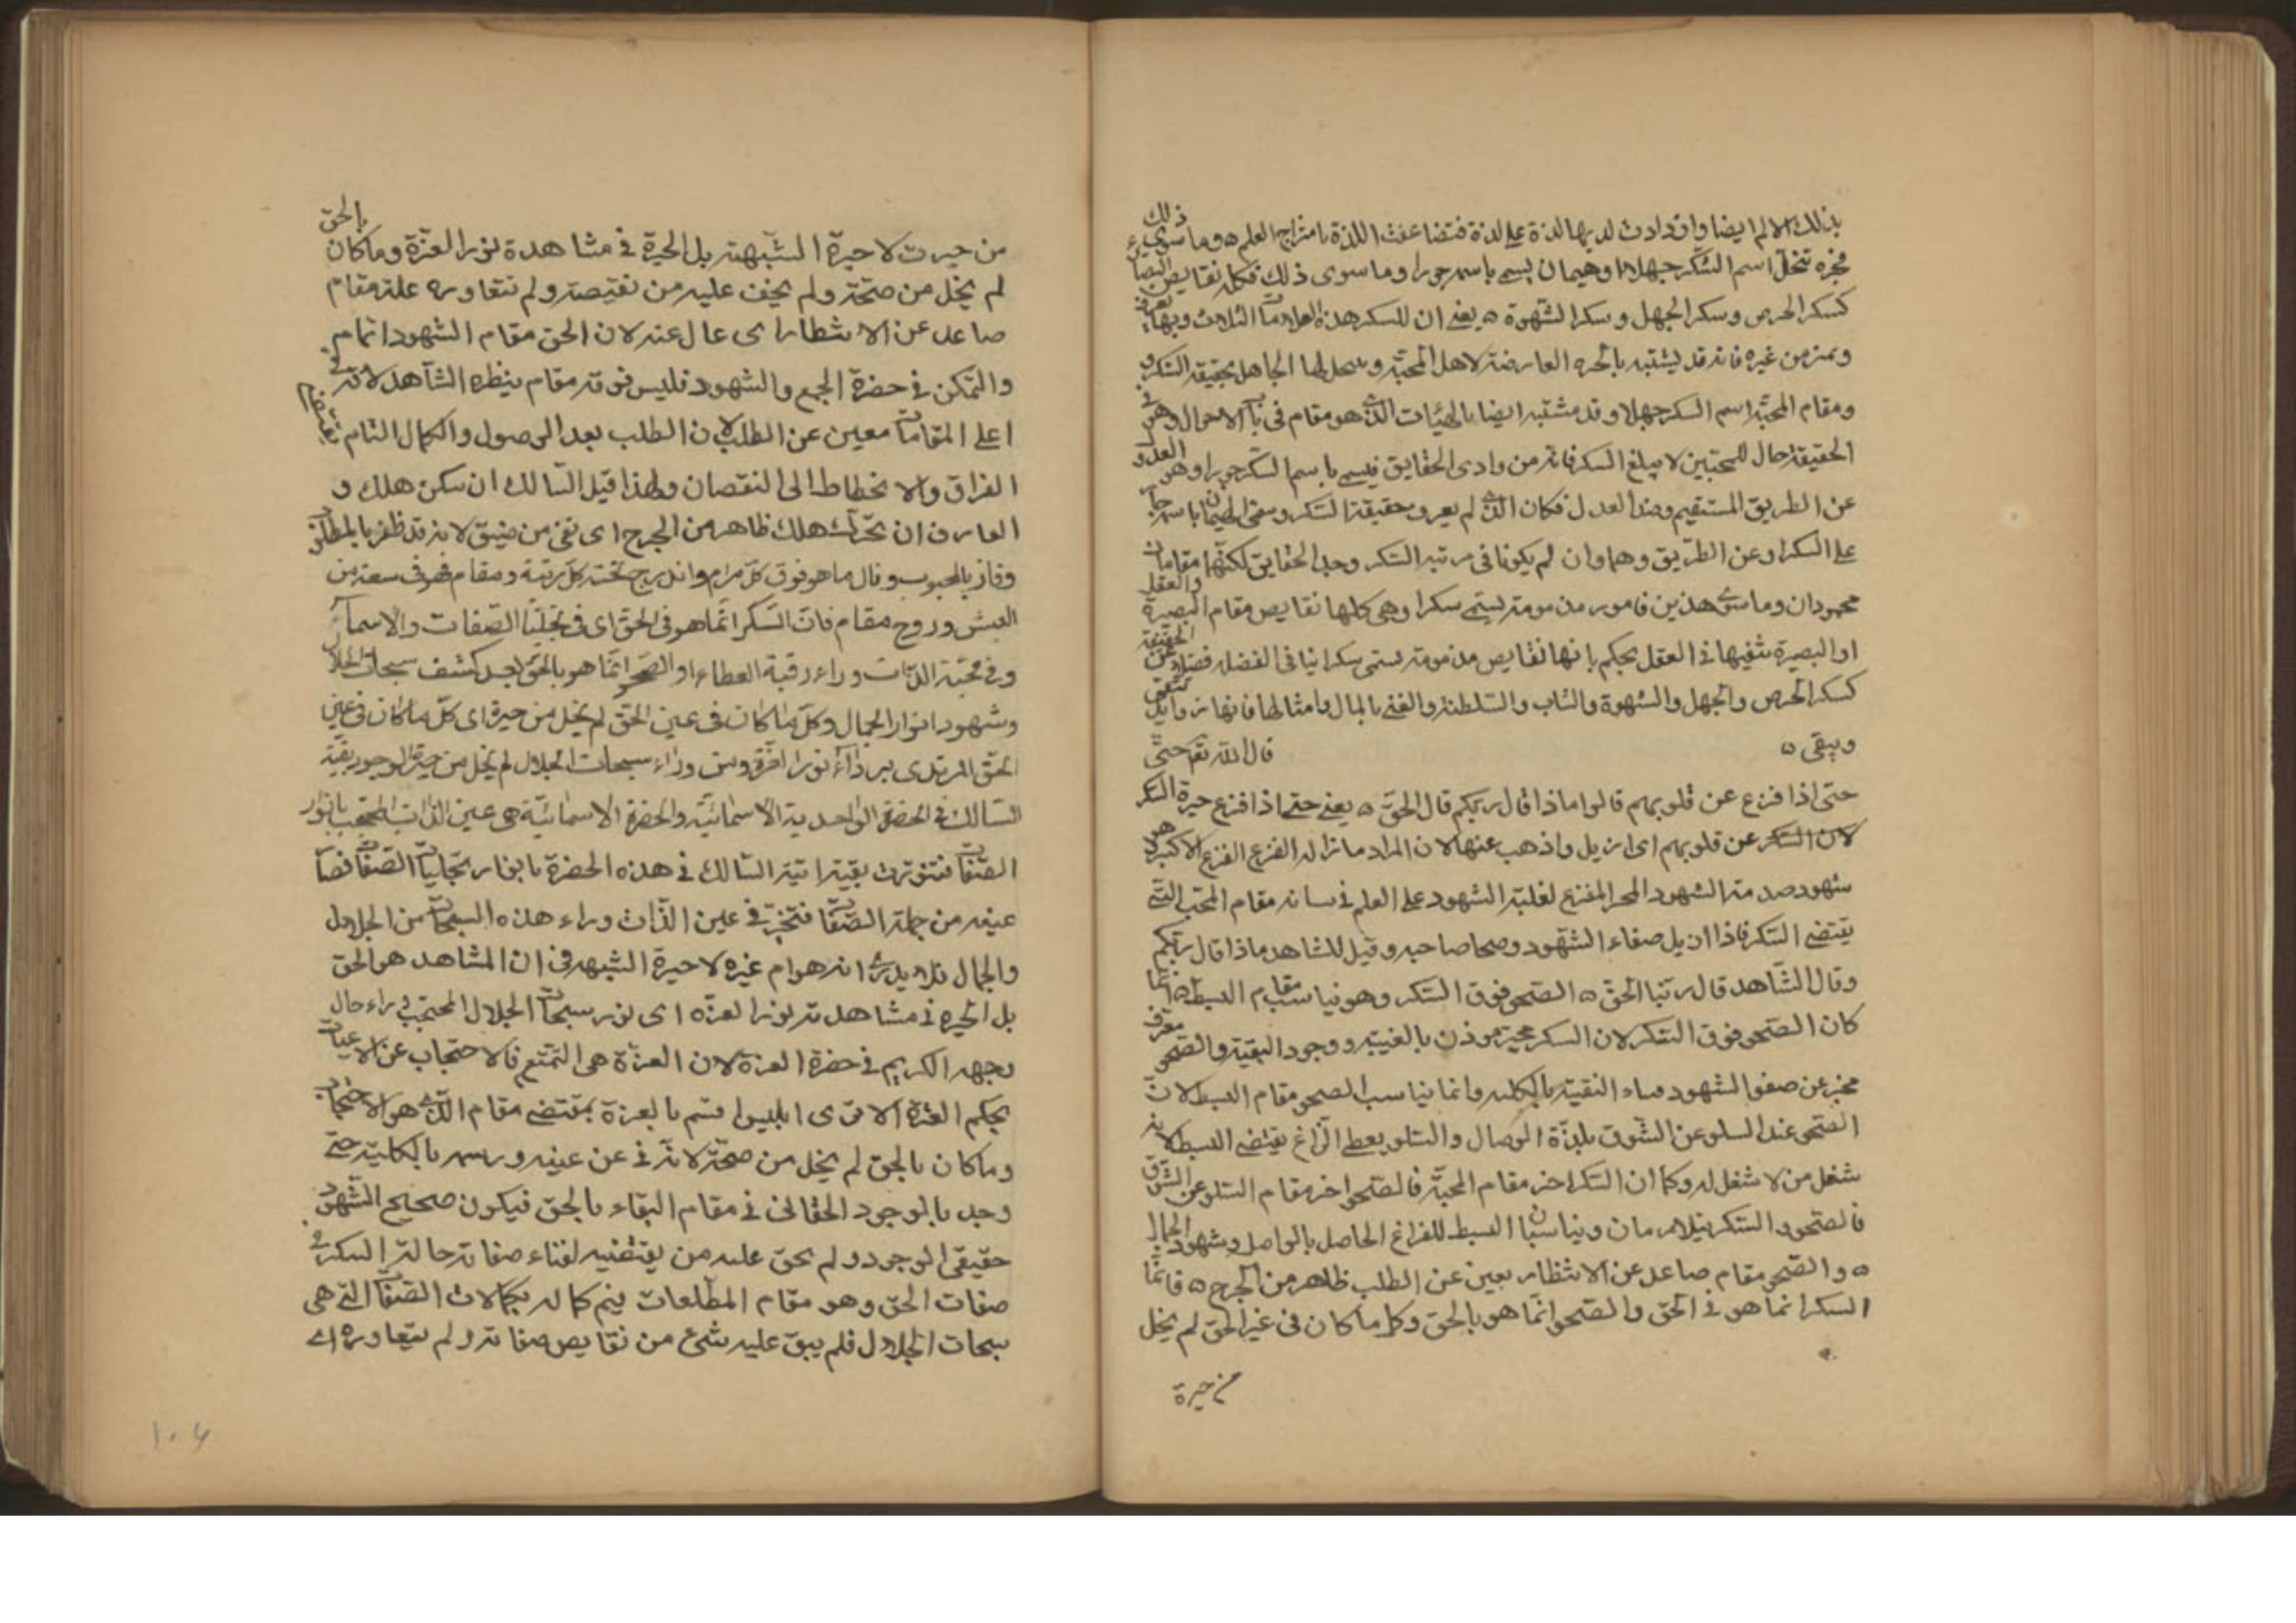 بذلك الالم ايضا وازدادت لديها لذة على لذة فتضاعفت اللذة بامتزاج العلم ه وما سوى ذلك
فحيرة تنحل اسم السكر جهلا او هيمان يسمى باسمه جورا وما سوى ذلك فكله نقايص البصاير
كسكر الحرص وسكر الجهل وسكر الشهوة ه يعنى ان للسكر هذه العلامات الثلاث وبها يعرف
ويميز من غيره فانه قد يشتبه بالحيرة العارضة لاهل المحبة الجاهل بحقيقة السكر
ومقام المحبة اسم السكر جهلا وقد يشتبه ايضا الذى هو مقام فى الاحوال وهو فى
الحقيقة حال للمحبين لا يبلغ السكر فانه من وادى الحقايق فيسمى باسم السكر جورا وهو العدول
عن الطريق المستقيم وضد العدل فكان الذى لم يعرف حقيقة السكر وسمى الهيمان باسمه
على السكر او عن الطريق وهما وان لم يكونا فى مرتبة السكر وحد الحقايق لكنهما مقامان
محمودان وما سوى هذين فامور مذمومة يسمى سكرا وهى كلها نقايص مقام البصيرة والعقل
او البصيرة العقل بحكم بانها نقايص مذمومة يسمى سكرا فى الفضل فضلا عن الحقيقة
كسكر الحرص والجهل والشهوة والشاب والسلطنة والغنى بالمال وامثالها فانها
ويبقى ه قال الله تعالى حتى
حتى اذا فزع عن قلوبهم قالوا ماذا قال ربكم قال الحق ه يعنى حتى اذا فزع حيرة السكر
لان السكر عن قلوبهم اى ازيل واذهب عنها لان المراد الفزع الفزع الاكبر وهو
شهود صدمة الشهود المفزع لغلبة الشهود على العلم مقام المحب التى
يقتضى السكر فاذا ازيل صفاء الشهود وصحا صاحبه وقيل للشاهد ماذا قال ربكم
وقال الشاهد قال ربنا الحق ه الصحو فوق السكر وهو يناسب مقام البسط ه انما
كان الصحو فوق السكر لان السكر حيرة موذن بالغيبة ووجود البقية والصحو
مخبر عن صفو الشهود البقية بالكلية وانما يناسب الصحو مقام البسط لان
الصحو عند السلو عن الشوق بلذة الوصال والسلو يقتضى البسط لانه
شغل من لا شغل له وكما ان السكر اخر مقام المحبة فالصحو اخر مقام السلو عن الشوق
فالصحو والسكر ويناسبان البسط للفراغ الحاصل بالواصل وشهود الجمال
ه والصحو مقام صاعد عن الانتظار عن الطلب ظاهر من الحرج ه فانما
السكر انما هو فى الحق والصحو انما هو بالحق وكل ما كان فى غير الحق لم يخل
من حيرة
من حيرت لا حيرة الشبهة بل الحيرة فى مشاهدة نور العزة وما كان بالحق
لم يخل من صحة ولم يخف عليه من نقيصة ولم تتعاوره علة مقام
صاعد عن الانتظار اى عال عنه لان الحق مقام الشهود اتمام
والتمكن فى حضرة الجمع والشهود فليس فوقه مقام ينظره الشاهد لانه فى
اعلى المقامات عن الطلب لان الطلب بعد الوصول والكمال التام يقتضى
الفراق والانحطاط الى النقصان ولهذا قيل السالك ان سكن هلك و
العارف ان تحرك هلك ظاهر من الحرج اى نقى من ضيق لانه قد ظفر بالمطلوب
وفاز بالمحبوب ونال ما هو فوق كل مرام واندرج تحته كل رتبة ومقام فهو فى سعة من
العيش وروح مقام فان السكر انما هو فى الحق اى فى تجليات الصفات والاسماء
وفى محبة الذات وراء العطاء او الصحو انما هو بالحق بعد كشف سبحات الجلال
وشهود انوار الجمال وكل ما كان فى عين الحق لم يخل من حيرة اى كل ما كان فى عين
الحق المرتدى برداء نور العزة ومن وراء سبحات الجلال لم يخل من حيرة الوجود بقية
السالك فى الحضرة الواحدية الاسمائية والحضرة الاسمائية هى عين الذات المحتجب بانوار
الصفات بقية انية السالك فى هذه الحضرة بانوار تجليات الصفات
عينه من جملة الصفات فتحير فى عين الذات وراء هذه السبحات من الجلال
والجمال فلا يدرى انه هو ام غيره لا حيرة الشبهة فى ان المشاهد هو الحق
بل الحيرة فى مشاهدته نور العزة اى نور سبحات الجلال المحتجب
وجهه الكريم فى حضرة العزة لان العزة هى التمتع فالاحتجاب عن الاعيان
بحكم العزة الا ترى ابليس قسم بالعزة بمقتضى مقام الذى هو الاحتجاب
وما كان بالحق لم يخل من صحة لانه عن عينه ورسمه بالكلية حتى
وجد بالوجود الحقانى فى مقام البقاء بالحق فيكون صحيح الشهود
حقيقى الوجود ولم من يقتضيه لفناء صفاته حالة السكر فى
صفات الحق وهو مقام المطالعات يتم كماله بكمالات الصفات التى هى
سبحات الجلال فلم يبق عليه شئ من نقايص صفاته ولم يتعاوره اى
١٠٤